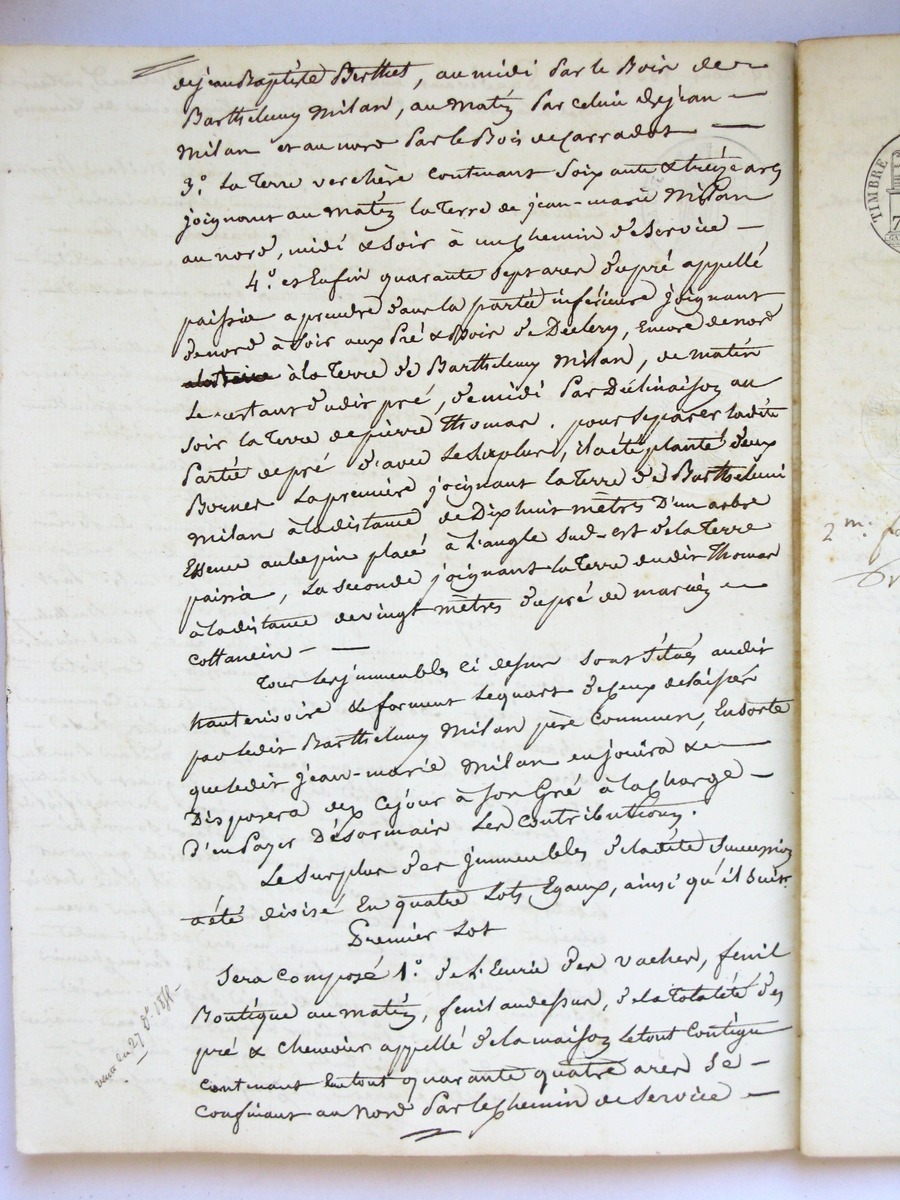 dejeanBaptiste Berthet, au midi par le Bois de
Barthelemy Milan, au Matin par celui dejean
Milan et au nord par le Bois de Carradot
3.° La Terre verchère contenant soixante & treize ares
joignant au matin la terre de jean-marie Milan
au nord, midi & soir à un chemin de service
4.° et Enfin quarante sept ares du pré appellé
paissia a prendre dans la partie inférieure joignant
de nord à soir aux Pré & Bois de Declery, Encore de nord
à la Terre de Barthelemy Milan, de matin
le restant dudit pré, de midi par Déclinaison au
soir la terre de pierre Thomas. pour separer ladite
Partie de pré d'avec le surplus, il a été planté deux
Bornes La premiere joignant la Terre de Barthelemi
Milan à la distance de Dix huit mètres D'un arbre
Essence aubepin placé à L'angle sud-est de la Terre
paissia, La seconde joignant la Terre dudit Thomas
à la distance de vingt mètres du pré de
cottancin
Tous les jmmeubles ci dessus sont situés audit
hauterivoire & forment le quart de Ceux delaissés
par ledit Barthelemy Milan père commun, Ensorte
que ledit jean-marie Milan en jouira &
Disposera des ce jour à son Gré à la charge
d'en Payer Désormais Les Contributions.
Le surplus des jmmeubles de ladite succession
a été divisé En quatre Lots Egaux, ainsi qu'il suit.
Premier Lot
Sera composé 1.° de L'Ecurie des vaches, fenil
Boutique au matin, fenil au dessus, de la totalité des
pré & chenevier appellé de la maison le tout contigu
contenant En tout quarante quatre ares se
confinant au Nord par le chemin de service
27
TIMBRE
7
2